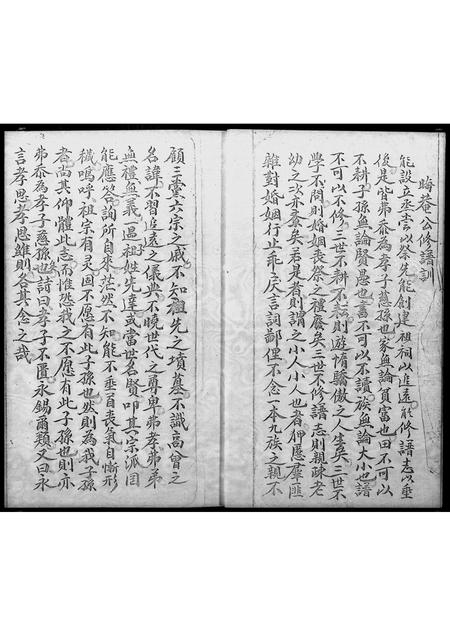 晦菴公修譜訓
能設立丞嘗以祭先能創建祖祠以追遠能修譜志以垂
後是皆弗忝為孝子慈孫也家無論貧富也田不可以
不耕子孫無論賢愚也書不可以不讀族無論大小也譜
不可以不修三世不耕不耘則遊惰驕傲之人生矣三世不
學不問則婚姻喪祭之禮廢矣三世不修譜志則親疎老
幼之次亦紊矣若是者則謂之小人小人也者仰愿羣匪
雜對婚姻行止乖戾言詞鄙俚不念一本九族之親不
顧三黨六宗之戚不知祖先之墳墓不識高曾之
名諱不習追遠之儀典不曉世代之尊卑弗孝弗弟
無禮無義一過祖姓先達或當世名賢叩其宗派因
能應答詢所自來茫然不知能不垂首喪氣自慚形
穢嗚呼祖宗有灵固不愿有此子孫也然則為我子孫
者尚其仰體此志而惟恐我之不愿有此子孫也則亦
弗忝為孝子慈孫矣詩曰孝子不匱永錫爾類又曰永
言孝思孝思維則各其念之哉